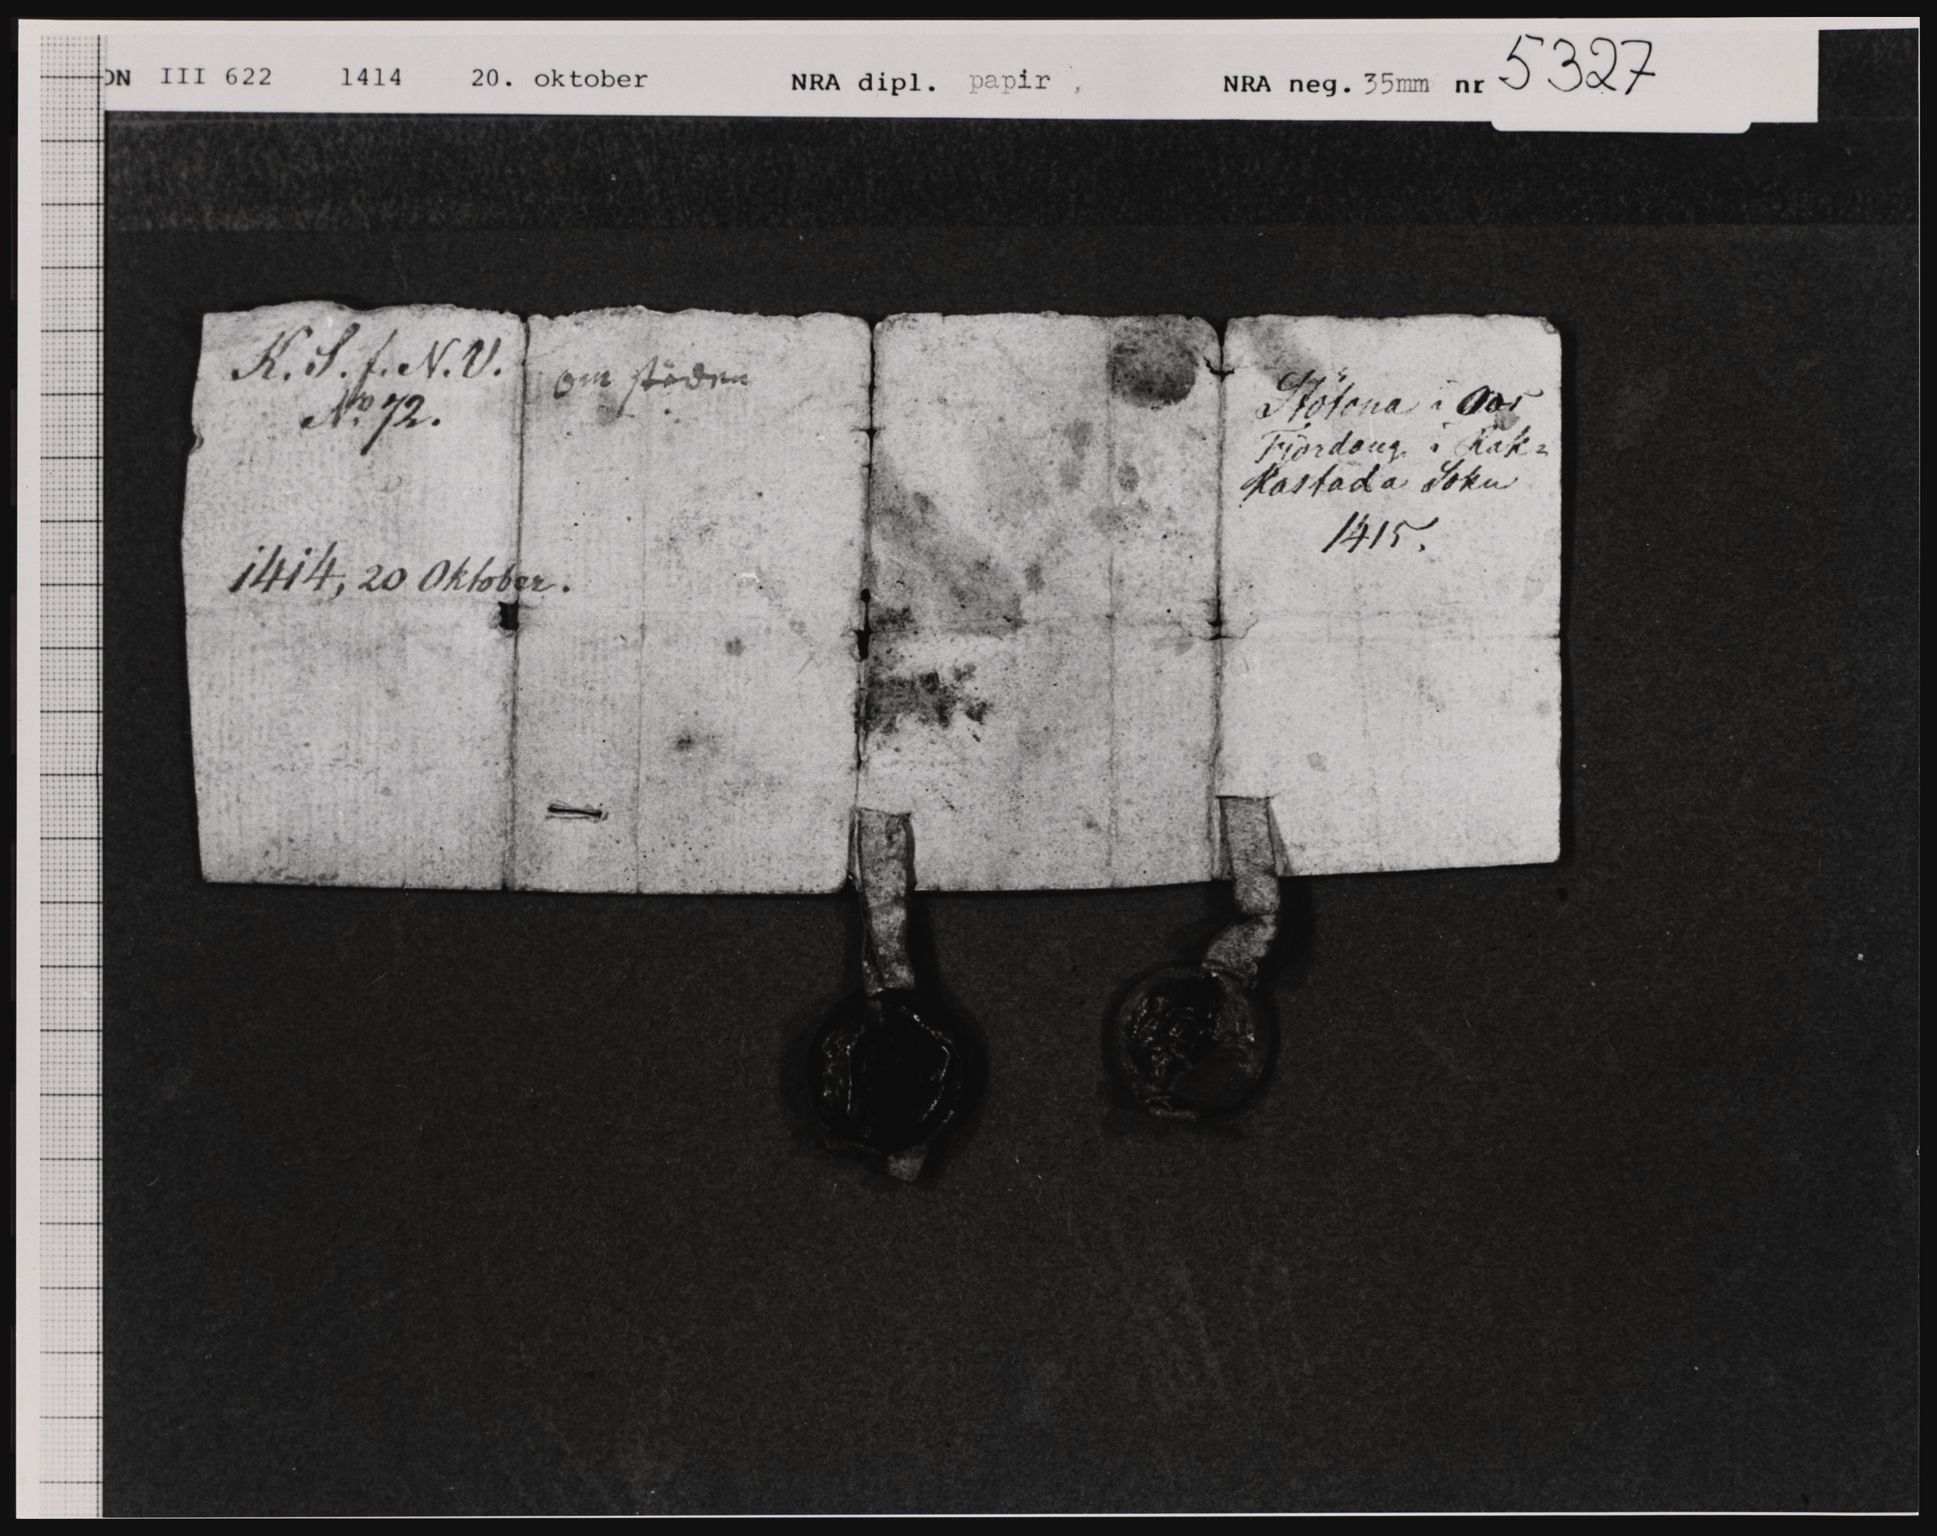 DN III 622 1414 20. oktober NRA dipl. papir NRA neg. 35mm nr 5327
K. S. f. N. V.
No 72.
om støden
1414, 20 Oktober.
Stötona i Aos
Fjordong i Rak=
kastada Sokn
1415.